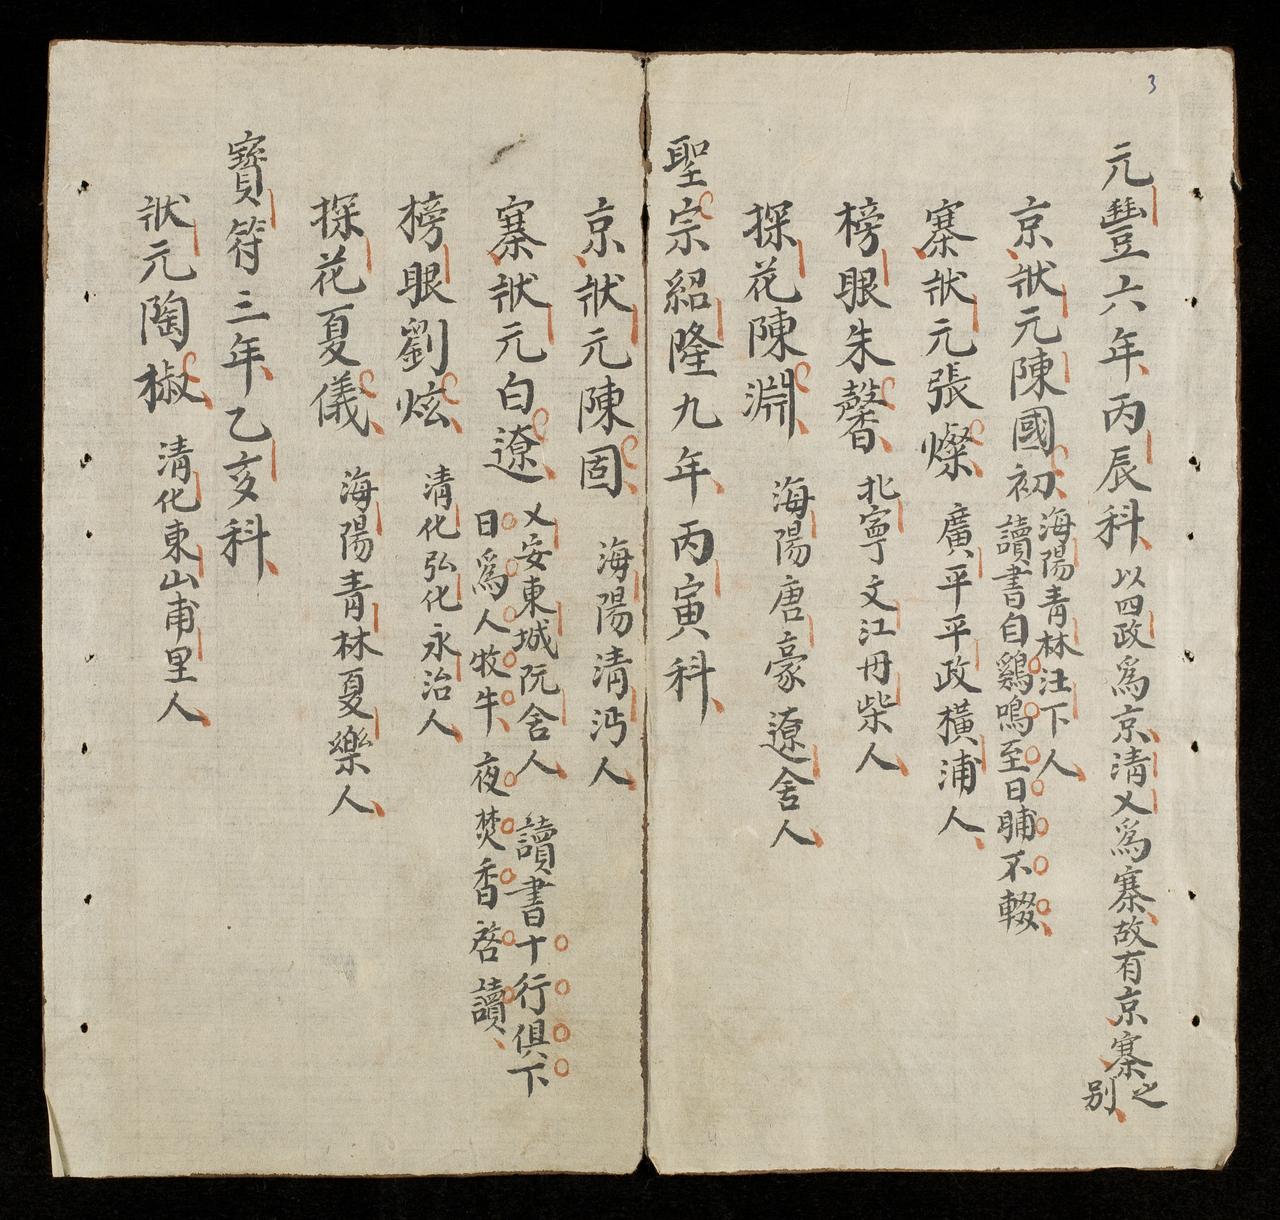 3
元豐六年丙辰科以四政爲京清乂爲寨故有京寨之别
京狀元陳國初海陽青林汪下人
讀書自鷄鳴至日晡不輟
寨狀元張燦廣平平政橫浦人
榜眼朱馨北寧文江冊柴人
探花陳淵海陽唐豪遼舍人
聖宗紹隆九年丙寅科
京狀元陳固海陽清沔人
寨狀元白遼乂安東城阮舍人讀書十行俱下
日爲人牧牛夜焚香啓讀
榜眼劉炫清化弘化永治人
探花夏儀海陽青林夏樂人
寶符三年乙亥科
狀元陶椒清化東山甫里人